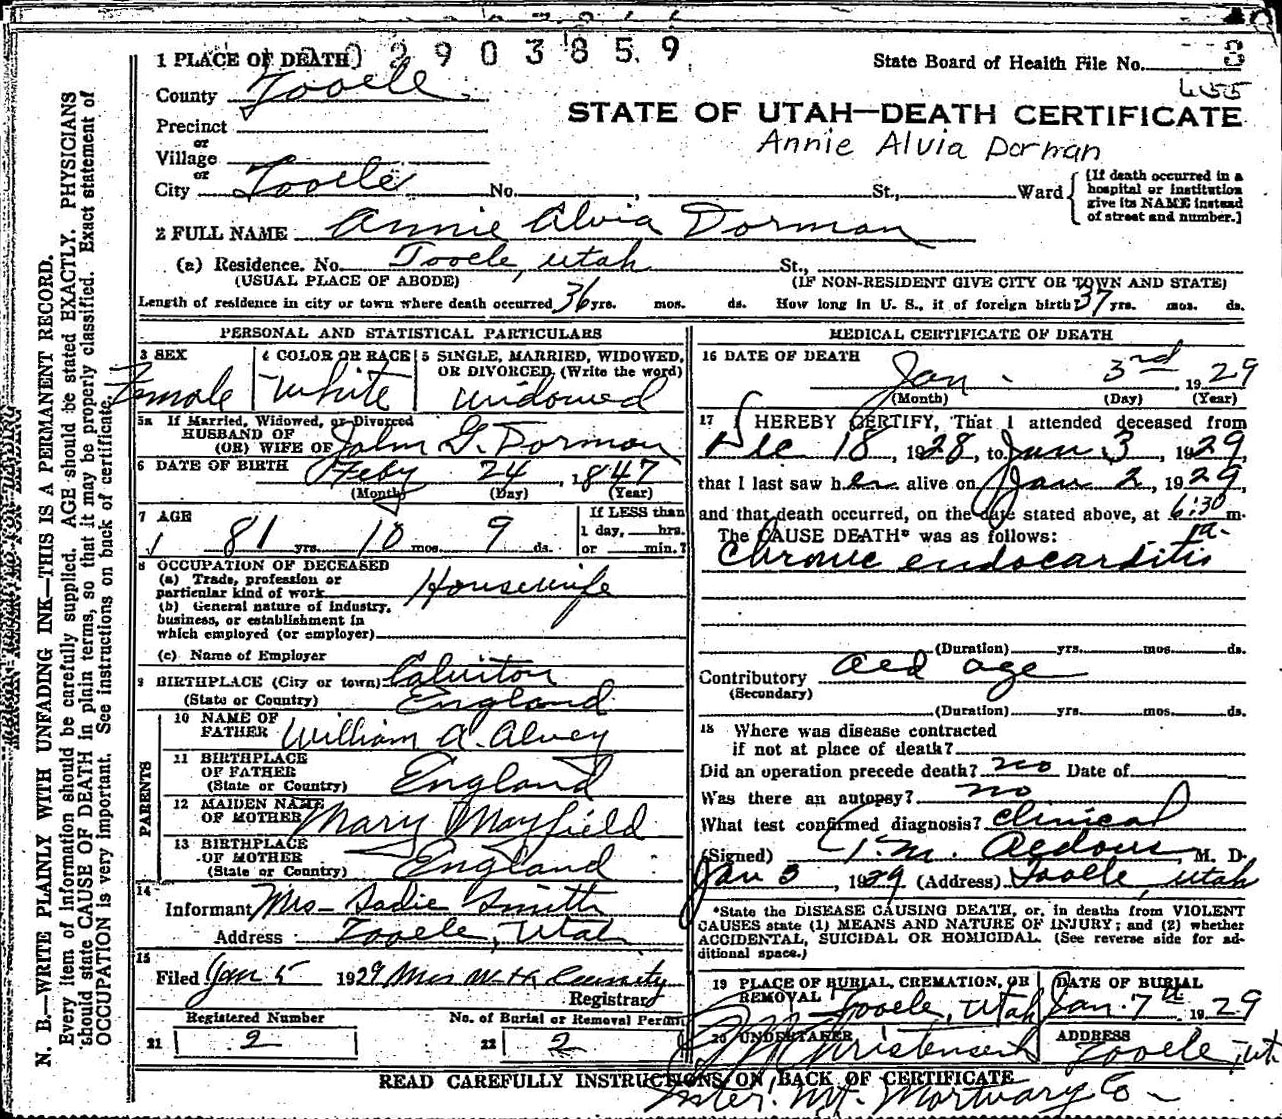 02903859
1 PLACE OF DEATH
State Board of Health File No. 3
County Tooele
455
STATE OF UTAH—DEATH CERTIFICATE
Precinct
or
Annie Alvia Dorman
Village
or
City Tooele No. , St., Ward
[If death occurred in a hospital or institution give its NAME instead of street and number.]
2 FULL NAME Annie Alvia Dorman
(a) Residence. No. Tooele, Utah St.,
(USUAL PLACE OF ABODE) (IF NON-RESIDENT GIVE CITY OR TOWN AND STATE)
Length of residence in city or town where death occurred 36 yrs. mos. ds. How long in U. S., if of foreign birth? 37 yrs. mos. ds.
PERSONAL AND STATISTICAL PARTICULARS
3 SEX 4 COLOR OR RACE 5 SINGLE, MARRIED, WIDOWED, OR DIVORCED, (Write the word)
Female White Widowed
5a If Married, Widowed, or Divorced
HUSBAND OF
(OR) WIFE OF John G. Dorman
6 DATE OF BIRTH Feby 24, 1847
(Month) (Day) (Year)
7 AGE If LESS than
1 day, hrs.
81 yrs. 10 mos. 9 ds. or min.?
8 OCCUPATION OF DECEASED
(a) Trade, profession or
particular kind of work Housewife
(b) General nature of industry,
business, or establishment in
which employed (or employer)
(c) Name of Employer
9 BIRTHPLACE (City or town)
(State or Country) England
PARENTS
10 NAME OF
FATHER William A. Alvey
11 BIRTHPLACE
OF FATHER England
(State or Country)
12 MAIDEN NAME
OF MOTHER Mary Mayfield
13 BIRTHPLACE
OF MOTHER England
(State or Country)
14
Informant Mrs Sadie Smith
Address Tooele, Utah
15
Filed Jan 5 1929 Mrs W. H.
Registrar
Registered Number No. of Burial or Removal Permit
21 2 22 2
MEDICAL CERTIFICATE OF DEATH
16 DATE OF DEATH
Jan 3rd, 1929
(Month) (Day) (Year)
17 I HEREBY CERTIFY, That I attended deceased from
Dec 18, 1928, to Jan 3, 1929,
that I last saw her alive on Jan 2, 1929,
and that death occurred, on the date stated above, at 6:30 a. m.
The CAUSE DEATH* was as follows:
Chronic endocarditis
(Duration) yrs. mos. ds.
Contributory age
(Secondary)
(Duration) yrs. mos. ds.
18 Where was disease contracted
if not at place of death?
Did an operation precede death? no Date of
Was there an autopsy? no
What test confirmed diagnosis? Clinical
(Signed) T. M. Aldous, M. D.
Jan 5, 1929 (Address) Tooele, Utah
*State the DISEASE CAUSING DEATH, or, in deaths from VIOLENT
CAUSES state (1) MEANS AND NATURE OF INJURY; and (2) whether
ACCIDENTAL, SUICIDAL OR HOMICIDAL. (See reverse side for ad-
ditional space.)
19 PLACE OF BURIAL, CREMATION, OR REMOVAL DATE OF BURIAL
Tooele, Utah Jan 7th 1929
20 UNDERTAKER ADDRESS
Christensen Tooele, Ut
READ CAREFULLY INSTRUCTIONS ON BACK OF CERTIFICATE
Inter. Mt. Mortuary Co
N. B.—WRITE PLAINLY WITH UNFADING INK—THIS IS A PERMANENT RECORD.
Every item of information should be carefully supplied. AGE should be stated EXACTLY. PHYSICIANS
should state CAUSE OF DEATH in plain terms, so that it may be properly classified. Exact statement of
OCCUPATION is very important. See instructions on back of certificate.